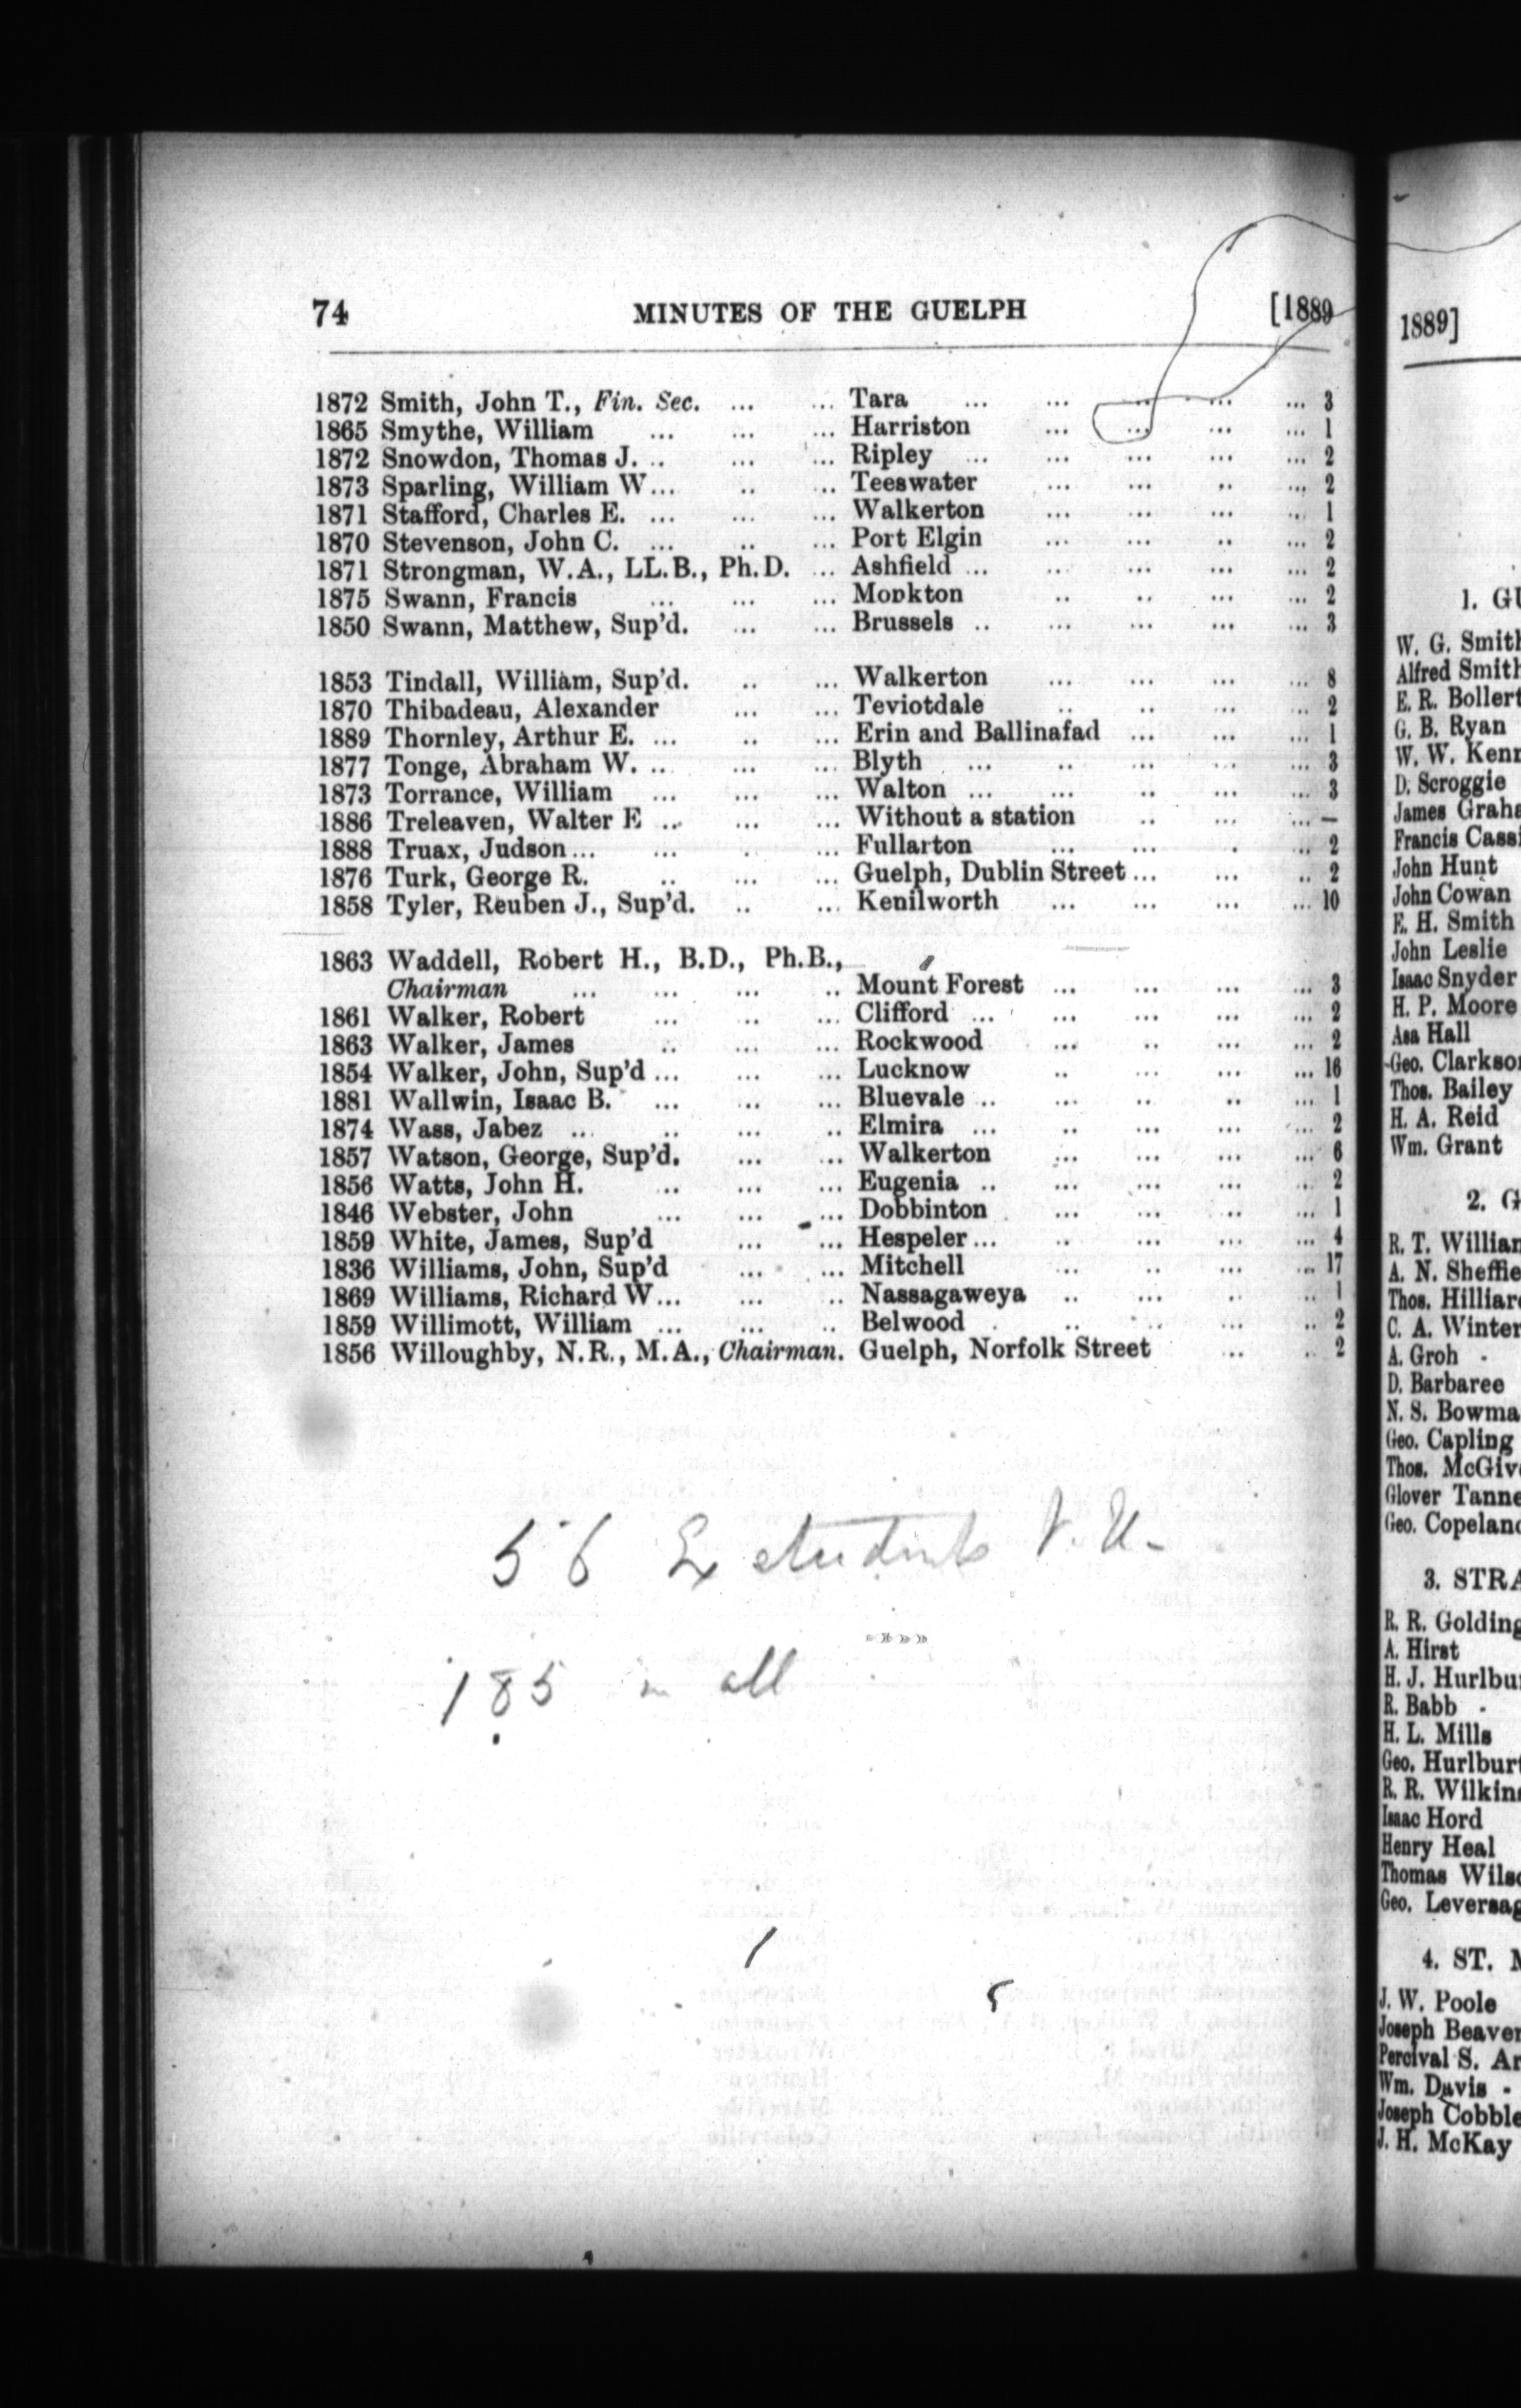 74 MINUTES OF THE GUELPH [1889
1872 Smith, John T., Fin. Sec. ... ... Tara ... ... ... ... ... 3
1865 Smythe, William ... ... ... Harriston ... ... ... ... 1
1872 Snowdon, Thomas J. .. ... ... Ripley ... ... ... ... ... 2
1873 Sparling, William W... .. ... Teeswater ... ... .. ... 2
1871 Stafford, Charles E. ... ... ... Walkerton ... ... ... ... 1
1870 Stevenson, John C. ... .. ... Port Elgin ... ... .. ... 2
1871 Strongman, W.A., LL.B., Ph.D. ... Ashfield ... ... ... ... ... 2
1875 Swann, Francis ... ... ... Monkton .. .. ... ... 2
1850 Swann, Matthew, Sup'd. ... ... Brussels .. ... ... ... ... 3
1853 Tindall, William, Sup'd. .. ... Walkerton ... ... ... ... 8
1870 Thibadeau, Alexander ... ... Teviotdale .. .. ... ... 2
1889 Thornley, Arthur E. ... .. ... Erin and Ballinafad ... ... ... 1
1877 Tonge, Abraham W. ... ... ... Blyth ... .. ... ... ... 3
1873 Torrance, William ... ... ... Walton ... ... .. ... ... 3
1886 Treleaven, Walter E ... ... ... Without a station .. ... ... —
1888 Truax, Judson... ... .. ... Fullarton ... ... . ... 2
1876 Turk, George R. .. ... ... Guelph, Dublin Street... ... .. 2
1858 Tyler, Reuben J., Sup'd. .. ... Kenilworth ... ... ... ... 10
1863 Waddell, Robert H., B.D., Ph.B.,
Chairman ... ... ... .. Mount Forest ... ... ... ... 3
1861 Walker, Robert ... ... ... Clifford ... ... ... ... ... 2
1863 Walker, James .. ... ... Rockwood ... .. ... ... 2
1854 Walker, John, Sup'd ... ... ... Lucknow .. ... ... ... 16
1881 Wallwin, Isaac B. ... ... ... Bluevale .. ... .. .. ... 1
1874 Wass, Jabez ... .. ... .. Elmira ... .. ... ... ... 2
1857 Watson, George, Sup'd. ... ... Walkerton ... ... ... ... 6
1856 Watts, John H. .. ... ... Eugenia .. ... ... .. ... 2
1846 Webster, John ... ... ... Dobbinton ... ... .. ... 1
1859 White, James, Sup'd ... ... Hespeler... .. ... ... ... 4
1836 Williams, John, Sup'd ... ... Mitchell ... .. ... ... 17
1869 Williams, Richard W... ... .. Nassagaweya .. ... .. .. 1
1859 Willimott, William ... ... .. Belwood . .. ... ... .. 2
1856 Willoughby, N.R., M.A., Chairman. Guelph, Norfolk Street ... .. 2
56 Ex students V. U.
185 in all
1889]
1. GU
W. G. Smith
Alfred Smith
E. R. Bollert
G. B. Ryan
W. W. Kenn
D. Scroggie
James Graha
Francis Cassi
John Hunt
John Cowan
E. H. Smith
John Leslie
Isaac Snyder
H. P. Moore
Asa Hall
Geo. Clarkson
Thos. Bailey
H. A. Reid
Wm. Grant
2. G
R. T. William
A. N. Sheffie
Thos. Hilliard
C. A. Winter
A. Groh -
D. Barbaree
N. S. Bowma
Geo. Capling
Thos. McGive
Glover Tanne
Geo. Copeland
3. STRA
R. R. Golding
A. Hirst
H. J. Hurlbur
R. Babb -
H. L. Mills
Geo. Hurlburt
R. R. Wilkins
Isaac Hord
Henry Heal
Thomas Wilso
Geo. Leversag
4. ST. M
J. W. Poole
Joseph Beaver
Percival S. Ar
Wm. Davis -
Joseph Cobble
J. H. McKay